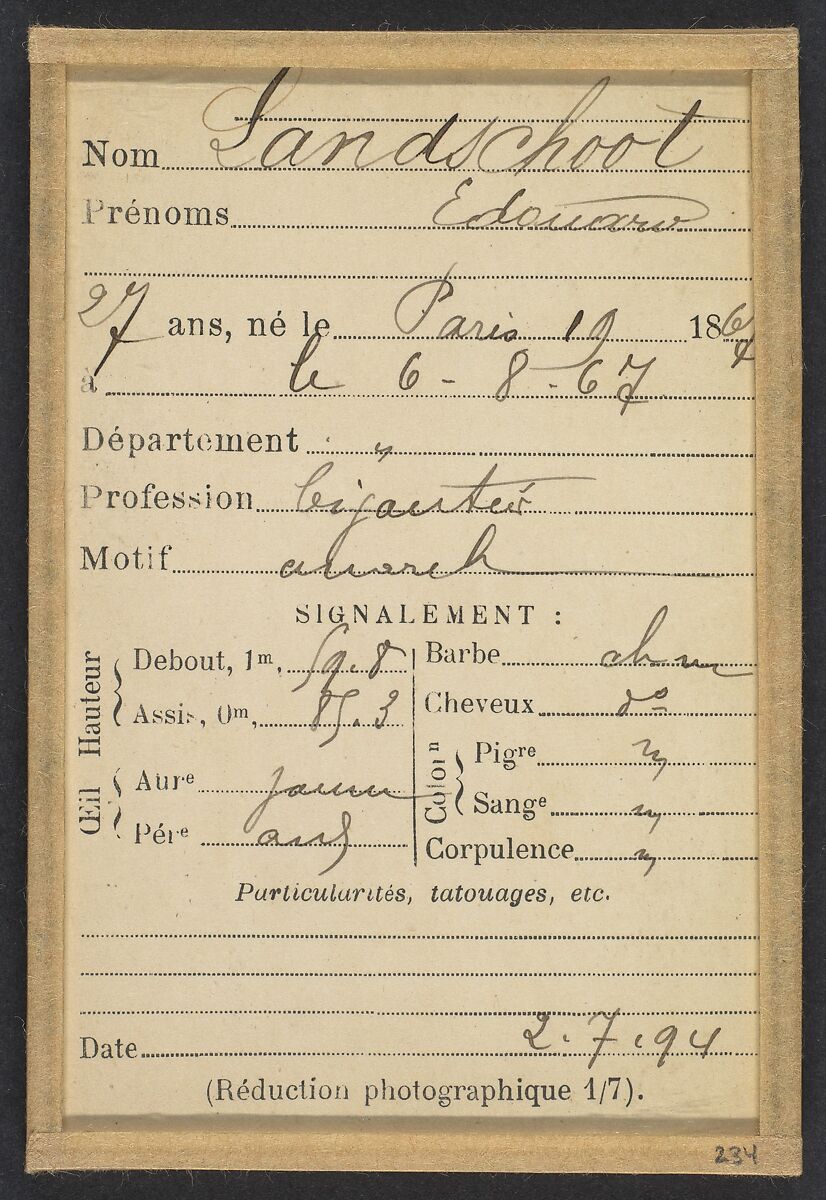 Nom Landschoot
Prénoms Edouard
27 ans, né le Paris 19 1867
à le 6-8-67
Département "
Profession bijoutier
Motif anarch
SIGNALEMENT :
Hauteur
Debout, 1m, 59.8
Assis, 0m, 85.3
Œil
Aure jaune
Pére
Barbe ch m
Cheveux do
Colorn
Pigre m
Sange m
Corpulence m
Particularités, tatouages, etc.
Date 2.7.94
(Réduction photographique 1/7).
234